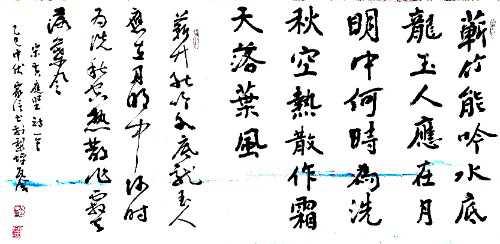 蘄竹能吟水底
龍玉人應在月
明中何時為洗
秋空熱散作霜
天落葉風
蘄竹能吟水底龍玉人
應在月明中何時
為洗秋空熱散作霜天
落葉風
宋黃庭堅詩一首
乙巳中伏